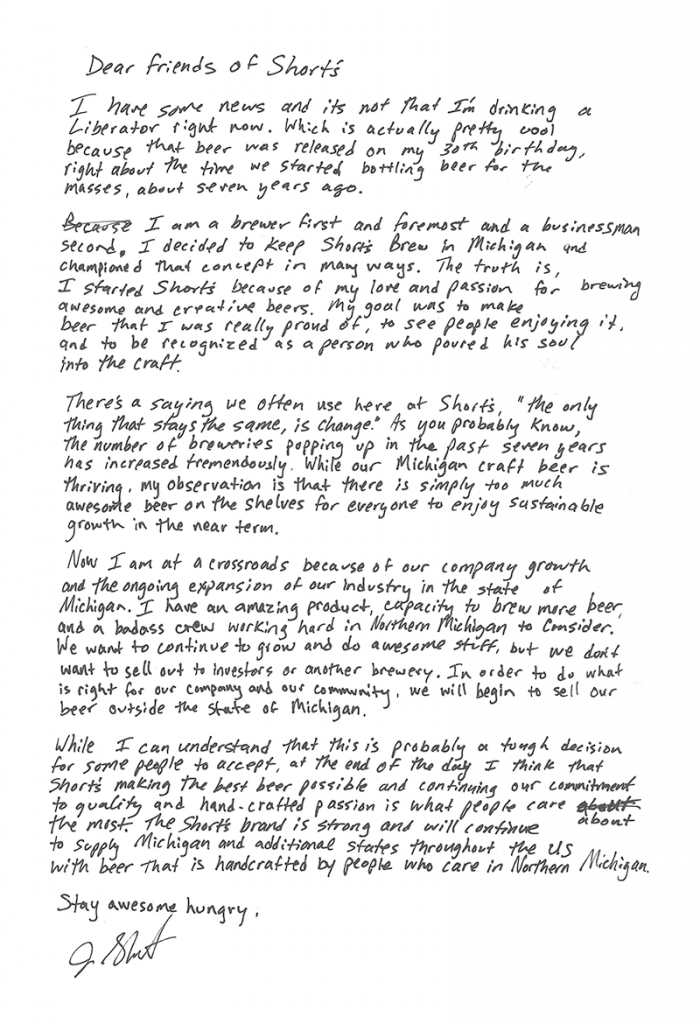 Dear friends of Short's
I have some news and its not that I'm drinking a
Liberator right now. Which is actually pretty cool
because that beer was released on my 30th birthday,
right about the time we started bottling beer for the
masses, about seven years ago.
Because I am a brewer first and foremost and a businessman
second. I decided to keep Short's Brew in Michigan and
championed that concept in many ways. The truth is,
I started Short's because of my love and passion for brewing
awesome and creative beers. My goal was to make
beer that I was really proud of, to see people enjoying it,
and to be recognized as a person who poured his soul
into the craft.
There's a saying we often use here at Short's, "the only
thing that stays the same, is change." As you probably know,
the number of breweries popping up in the past seven years
has increased tremendously. While our Michigan craft beer is
thriving, my observation is that there is simply too much
awesome beer on the shelves for everyone to enjoy sustainable
growth in the near term.
Now I am at a crossroads because of our company growth
and the ongoing expansion of our industry in the state of
Michigan. I have an amazing product, capacity to brew more beer,
and a badass crew working hard in Northern Michigan to consider.
We want to continue to grow and do awesome stuff, but we don't
want to sell out to investors or another brewery. In order to do what
is right for our company and our community, we will begin to sell our
beer outside the state of Michigan.
While I can understand that this is probably a tough decision
for some people to accept, at the end of the day I think that
Short's making the best beer possible and continuing our commitment
to quality and hand-crafted passion is what people care about
the most. The Short's brand is strong and will continue about
to supply Michigan and additional states throughout the US
with beer that is handcrafted by people who care in Northern Michigan.
Stay awesome hungry,
J. Short